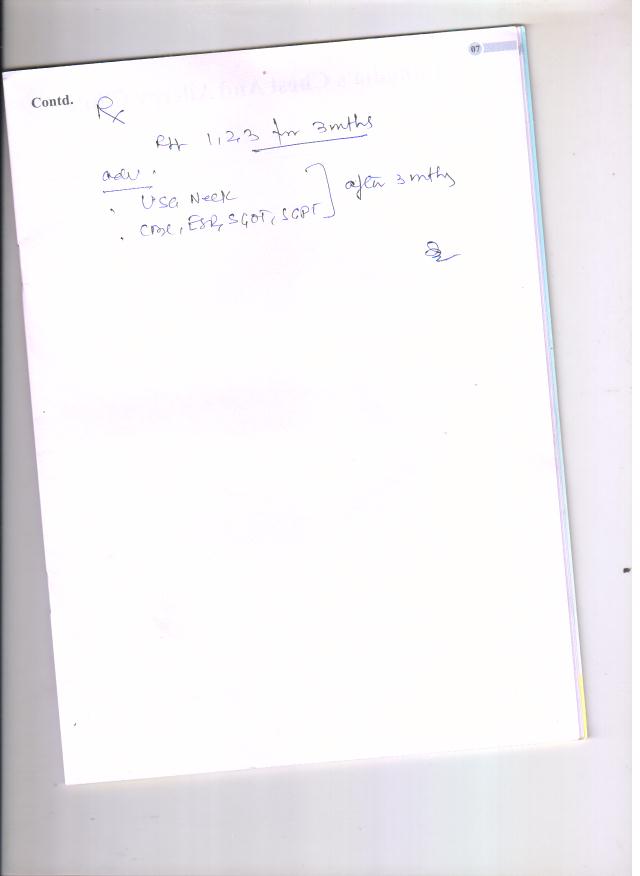 07
Contd. Rx
RH 1,2,3 for 3 mths
adv.
. USG Neck
. CBC, ESR, SGOT, SGPT
after 3 mths